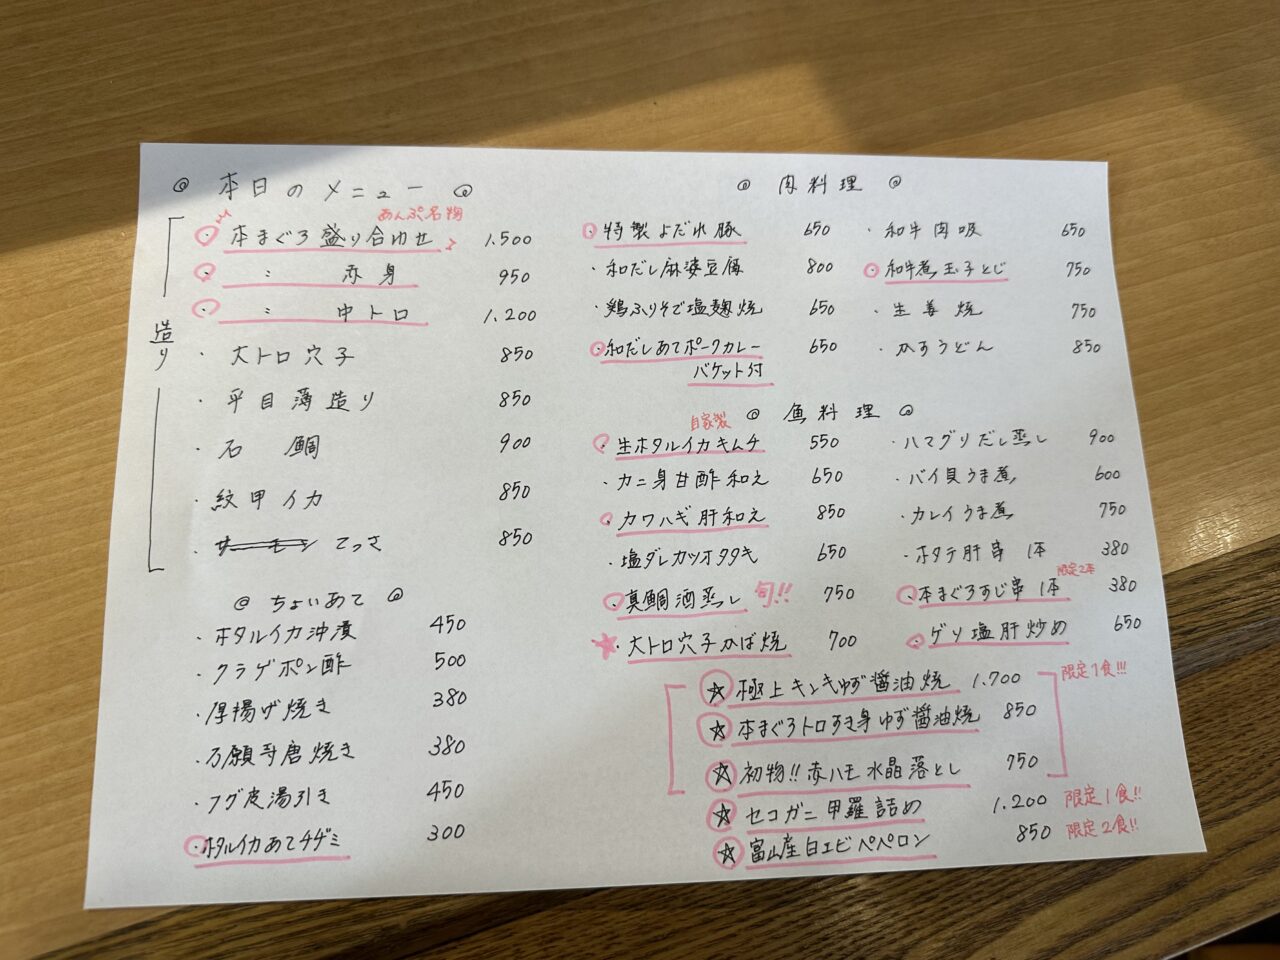 ◎ 本日のメニュー ◎
あんぷ名物
造り
・本まぐろ盛り合わせ 1.500
・〃 赤身 950
・〃 中トロ 1.200
・大トロ穴子 850
・平目薄造り 850
・石鯛 900
・紋甲イカ 850
・サーモン てっさ 850
◎ ちょいあて ◎
・ホタルイカ沖漬 450
・クラゲポン酢 500
・厚揚げ焼き 380
・万願寺唐焼き 380
・フグ皮湯引き 450
・ホタルイカあてチヂミ 300
◎ 肉料理 ◎
・特製よだれ豚 650
・和だし麻婆豆腐 800
・鶏ふりそで塩麹焼 650
・和だしあてポークカレー 650
バケット付
・和牛肉吸 650
・和牛煮玉子とじ 750
・生姜焼 750
・かすうどん 850
◎ 魚料理 ◎
自家製
・生ホタルイカキムチ 550
・カニ身甘酢和え 650
・カワハギ肝和え 850
・塩ダレカツオタタキ 650
・真鯛酒蒸し 旬!! 750
★・大トロ穴子かば焼 700
・ハマグリだし蒸し 900
・バイ貝うま煮 600
・カレイうま煮 750
・ホタテ肝串 1本 380
限定2本
・本まぐろすじ串 1本 380
・ゲソ塩肝炒め 650
☆ 極上キンキゆず醤油焼 1.700 限定1食!!!
☆ 本まぐろトロすき身ゆず醤油焼 850
☆ 初物!! 赤ハモ水晶落とし 750
☆ セコガニ甲羅詰め 1.200 限定1食!!
☆ 富山産白エビペペロン 850 限定2食!!